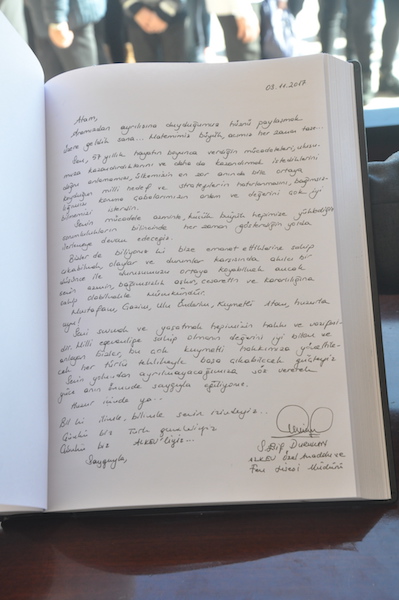 09.11.2017
Atam,
Aramızdan ayrılışına duyduğumuz hüznü paylaşmak
üzere geldik sana... Milletimiz büyük, acımız her zaman taze...
Sen, 57 yıllık hayatın boyunca verdiğin mücadeleleri, ulusu-
muza kazandırdıklarını ve daha da kazandırmak istediklerini
doğru anlamamızı, ülkemizin en zor anında bile ortaya
koyduğun milli hedef ve stratejilerin hatırlanmasını, bağımsız-
lığımızı koruma çabalarımızın önemi ve değerini çok iyi
bilmemizi isterdin.
Senin mücadele azminle, küçük büyük hepimize yüklediğin
sorumlulukların bilincinde her zaman gösterdiğin yolda
ilerlemeye devam edeceğiz.
Bizler de biliyoruz ki bize emanet ettiklerine sahip
çıkabilmek, olaylar ve durumlar karşısında akılcı bir
düşünce ile duruşumuzu ortaya koyabilmek ancak
senin azmin, bağımsızlık aşkın, cesaretin ve kararlılığına
sahip olabilmekle mümkündür.
Mustafam, Gazim, Ulu Önderim, Kıymetli Atam, huzurla
uyu!
Seni sevmek ve yaşatmak hepimizin hakkı ve vazifesi-
dir. Milli egemenliğe sahip olmanın değerini iyi bilen ve
anlayan bizler, bu çok kıymetli hakkımıza yöneltile-
cek her türlü tehlikeyle başa çıkabilecek güçteyiz.
Senin yolundan ayrılmayacağımıza söz vererek
yüce anın önünde saygıyla eğiliyoruz.
Huzur içinde ya...
Bil ki izinde, bilimde senin rehberiz...
Çünkü biz Türk gençleriyiz
Çünkü biz ALKEV'liyiz...
Saygıyla,
S. Elif DURHAN
ALKEV Özel Anadolu ve
Fen Lisesi Müdürü